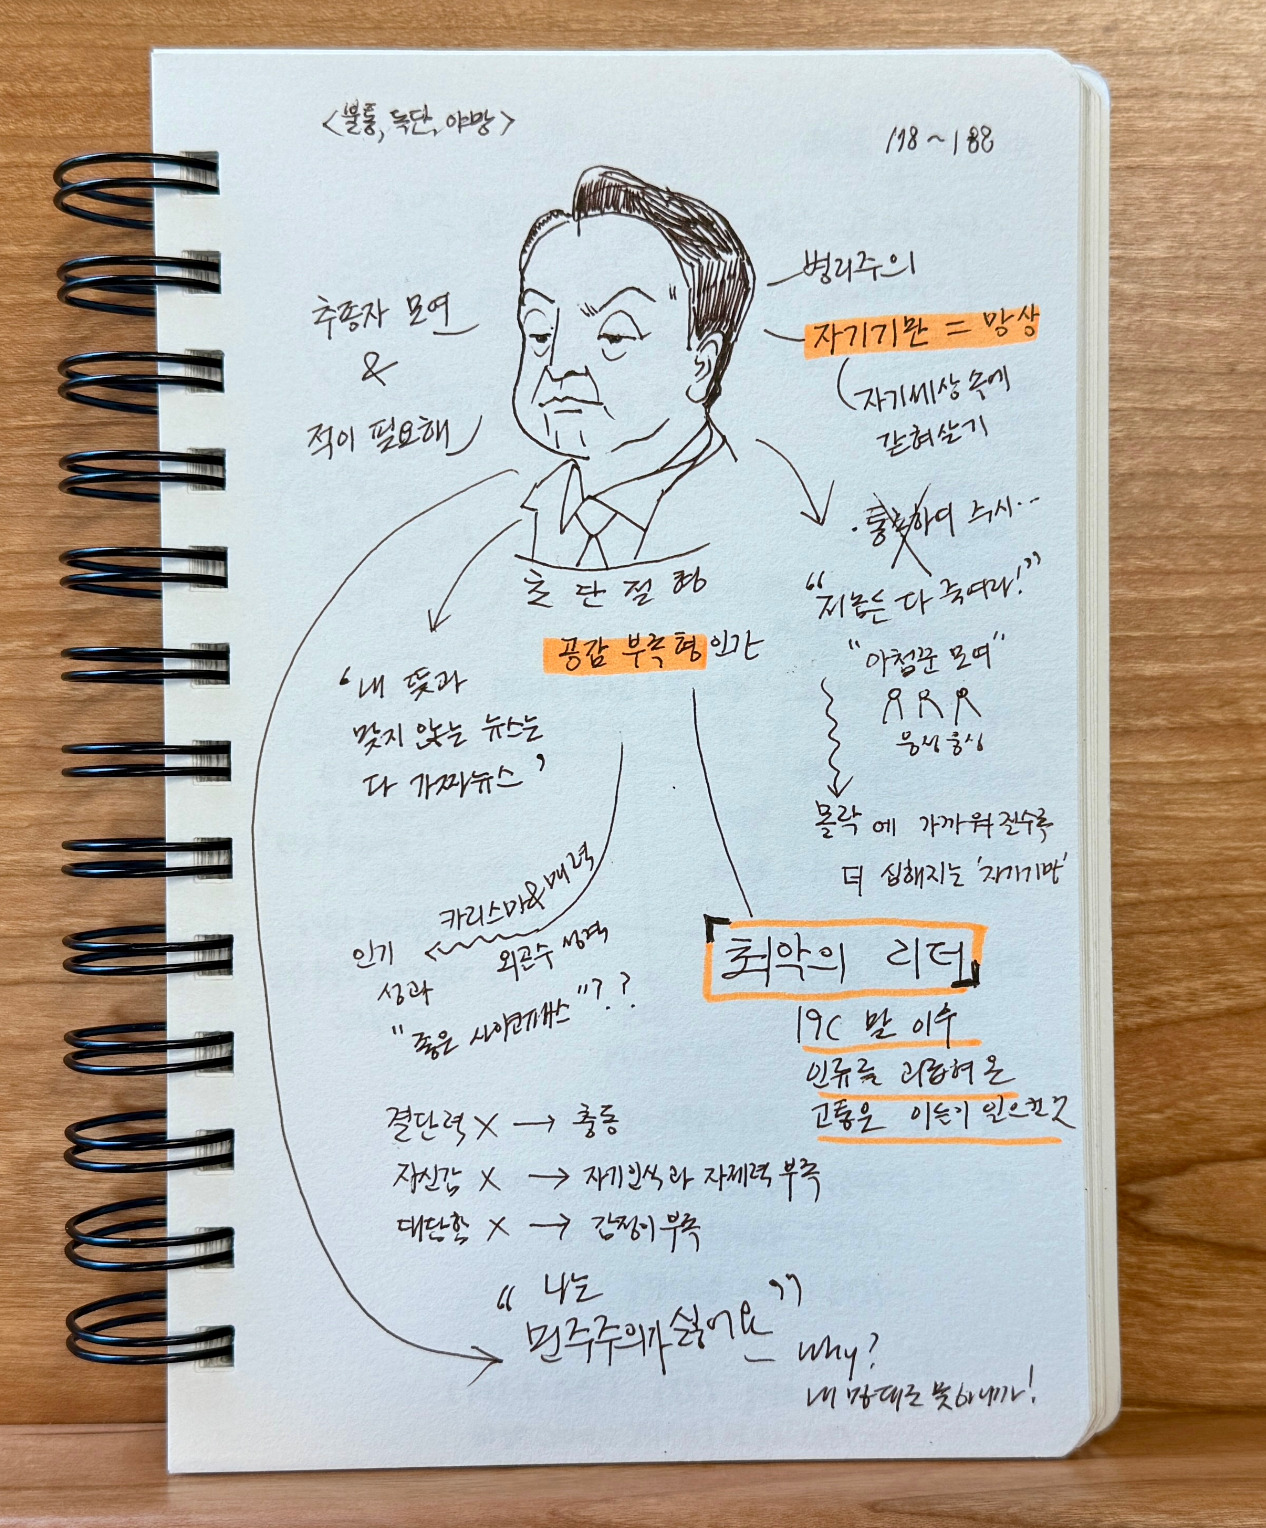 <불통, 독단, 야망>
178~188
추종자 모여
&
적이 필요해
병리주의
자기기만 = 망상
자기세상 속에
갇혀살기
초단절형
공감 부족형 인간
·통촉하여 주시…
"저놈은 다 죽여라!"
"아첨꾼 모여"
웅성웅성
몰락에 가까워질수록
더 심해지는 '자기기만'
'내 뜻과
맞지 않는 뉴스는
다 가짜뉴스'
카리스마&매력
외관수 성격
인기
성과
"좋은 사이코패스"??
『최악의 리더』
19C 말 이후
인류를 괴롭혀 온
고통은 이들이 일으킨 것
결단력 X → 충동
자신감 X → 자기인식과 자제력 부족
대담함 X → 감정이 부족
"나는
민주주의가 싫어요"
— Why?
내 맘대로 못하니까!